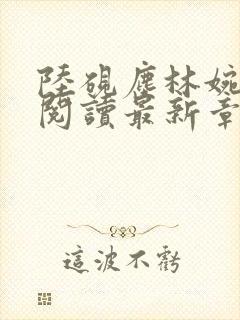 陸硯塵林婉
閱讀最新章
這波不虧